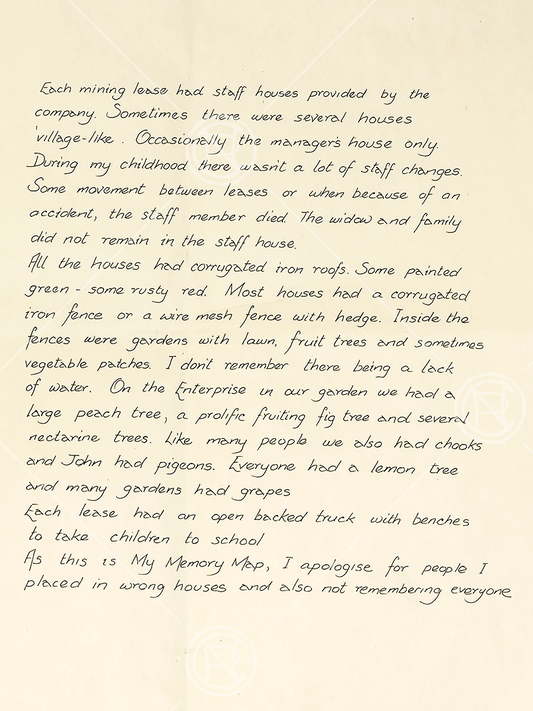 Each mining lease had staff houses provided by the
company. Sometimes there were several houses
'village-like. Occasionally the manager's house only.
During my childhood there wasn't a lot of staff changes.
Some movement between leases or when because of an
accident, the staff member died. The widow and family
did not remain in the staff house.
All the houses had corrugated iron roofs. Some painted
green - some rusty red. Most houses had a corrugated
iron fence or a wire mesh fence with hedge. Inside the
fences were gardens with lawn, fruit trees and sometimes
vegetable patches. I don't remember there being a lack
of water. On the Enterprise in our garden we had a
large peach tree, a prolific fruiting fig tree and several
nectarine trees. Like many people we also had chooks
and John had pigeons. Everyone had a lemon tree
and many gardens had grapes
Each lease had an open backed truck with benches
to take children to school
As this is My Memory Map, I apologise for people I
placed in wrong houses and also not remembering everyone